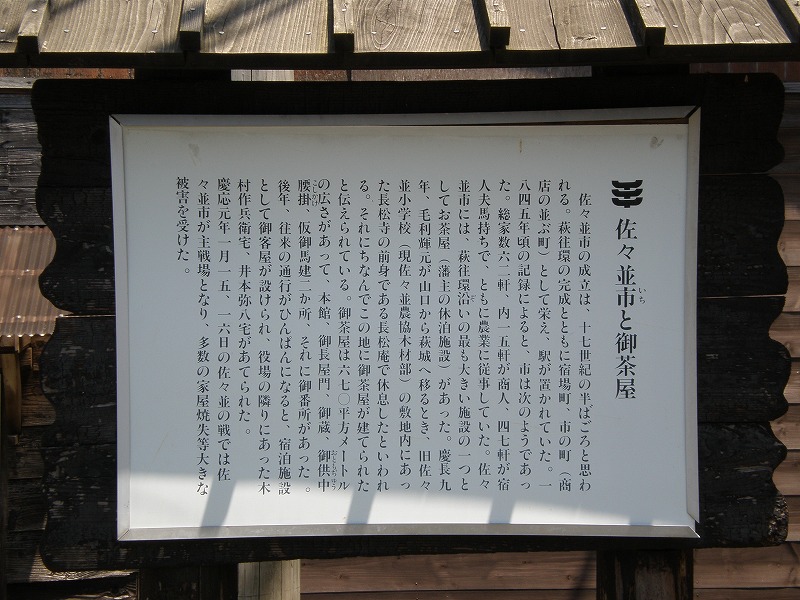 佐々並市と御茶屋
いち
佐々並市の成立は、十七世紀の半ばごろと思わ
れる。萩往環の完成とともに宿場町、市の町（商
店の並ぶ町）として栄え、駅が置かれていた。一
八四五年頃の記録によると、市は次のようであっ
た。総家数六二軒、内一五軒が商人、四七軒が宿
人夫馬持ちで、ともに農業に従事していた。佐々
並市には、萩往環沿いの最も大きい施設の一つと
してお茶屋（藩主の休泊施設）があった。慶長九
年、毛利輝元が山口から萩城へ移るとき、旧佐々
並小学校（現佐々並農協木材部）の敷地内にあっ
た長松寺の前身である長松庵で休息したといわれ
る。それにちなんでこの地に御茶屋が建てられた
と伝えられている。御茶屋は六七〇平方メートル
の広さがあって、本館、御長屋門、御蔵、御供中
腰掛、仮御馬建二か所、それに御番所があった。
こしかけ
後年、往来の通行がひんぱんになると、宿泊施設
として御客屋が設けられ、役場の隣りにあった木
村作兵衛宅、井本弥八宅があてられた。
慶応元年一月一五、一六日の佐々並の戦では佐
々並市が主戦場となり、多数の家屋焼失等大きな
被害を受けた。